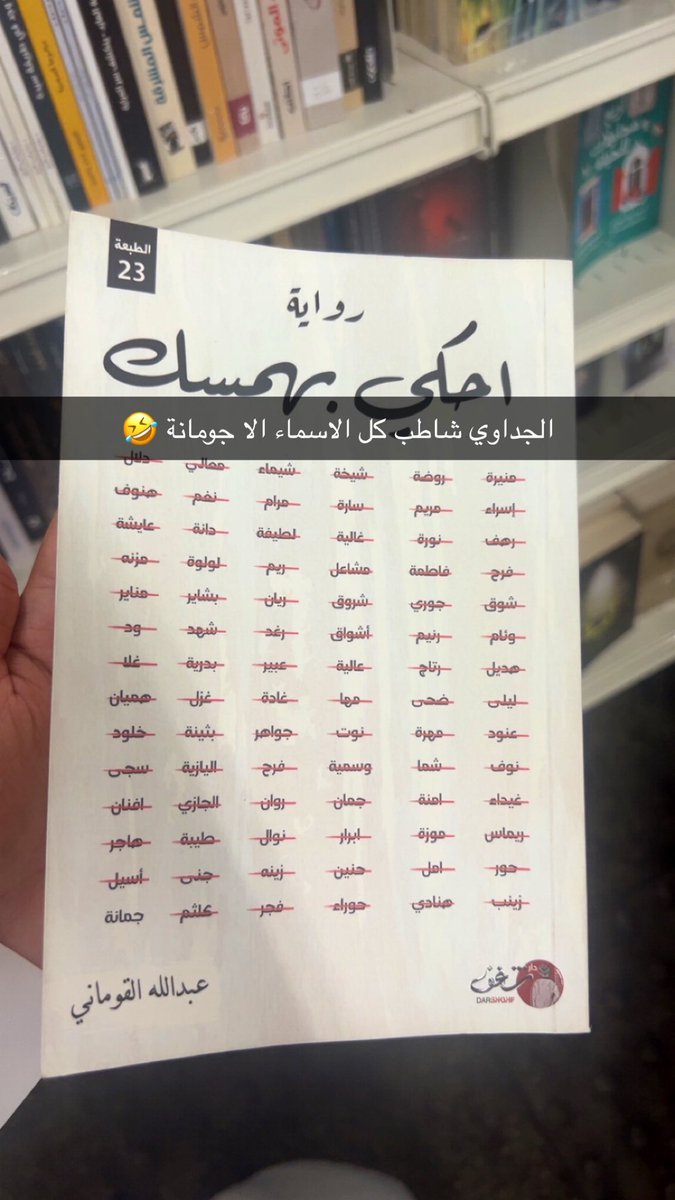 الطبعة
23
رواية
احكي بهمسك
الجداوي شاطب كل الاسماء الا جومانة 🤣
منيرة روضة شيخة شيماء معالي دلال
إسراء مريم سارة مرام نغم هنوف
رهف نورة غالية لطيفة دانة عايشة
فرح فاطمة مشاعل ريم لولوة مزنه
شوق جوري شروق ريان بشاير مناير
وئام رنيم أشواق رغد شهد ود
هديل رتاج عالية عبير بدرية غلا
ليلى ضحى مها غادة غزل هميان
عنود مهرة نوت جواهر بثينة خلود
نوف شما وسمية فرح اليازية سجى
غيداء امنة جمان روان الجازي افنان
ريماس موزة ابرار نوال طيبة هاجر
حور امل حنين زينه جنى أسيل
زينب هنادي حوراء فجر كلثم جمانة
عبدالله القوماني
دار شغف
DARSHGHF